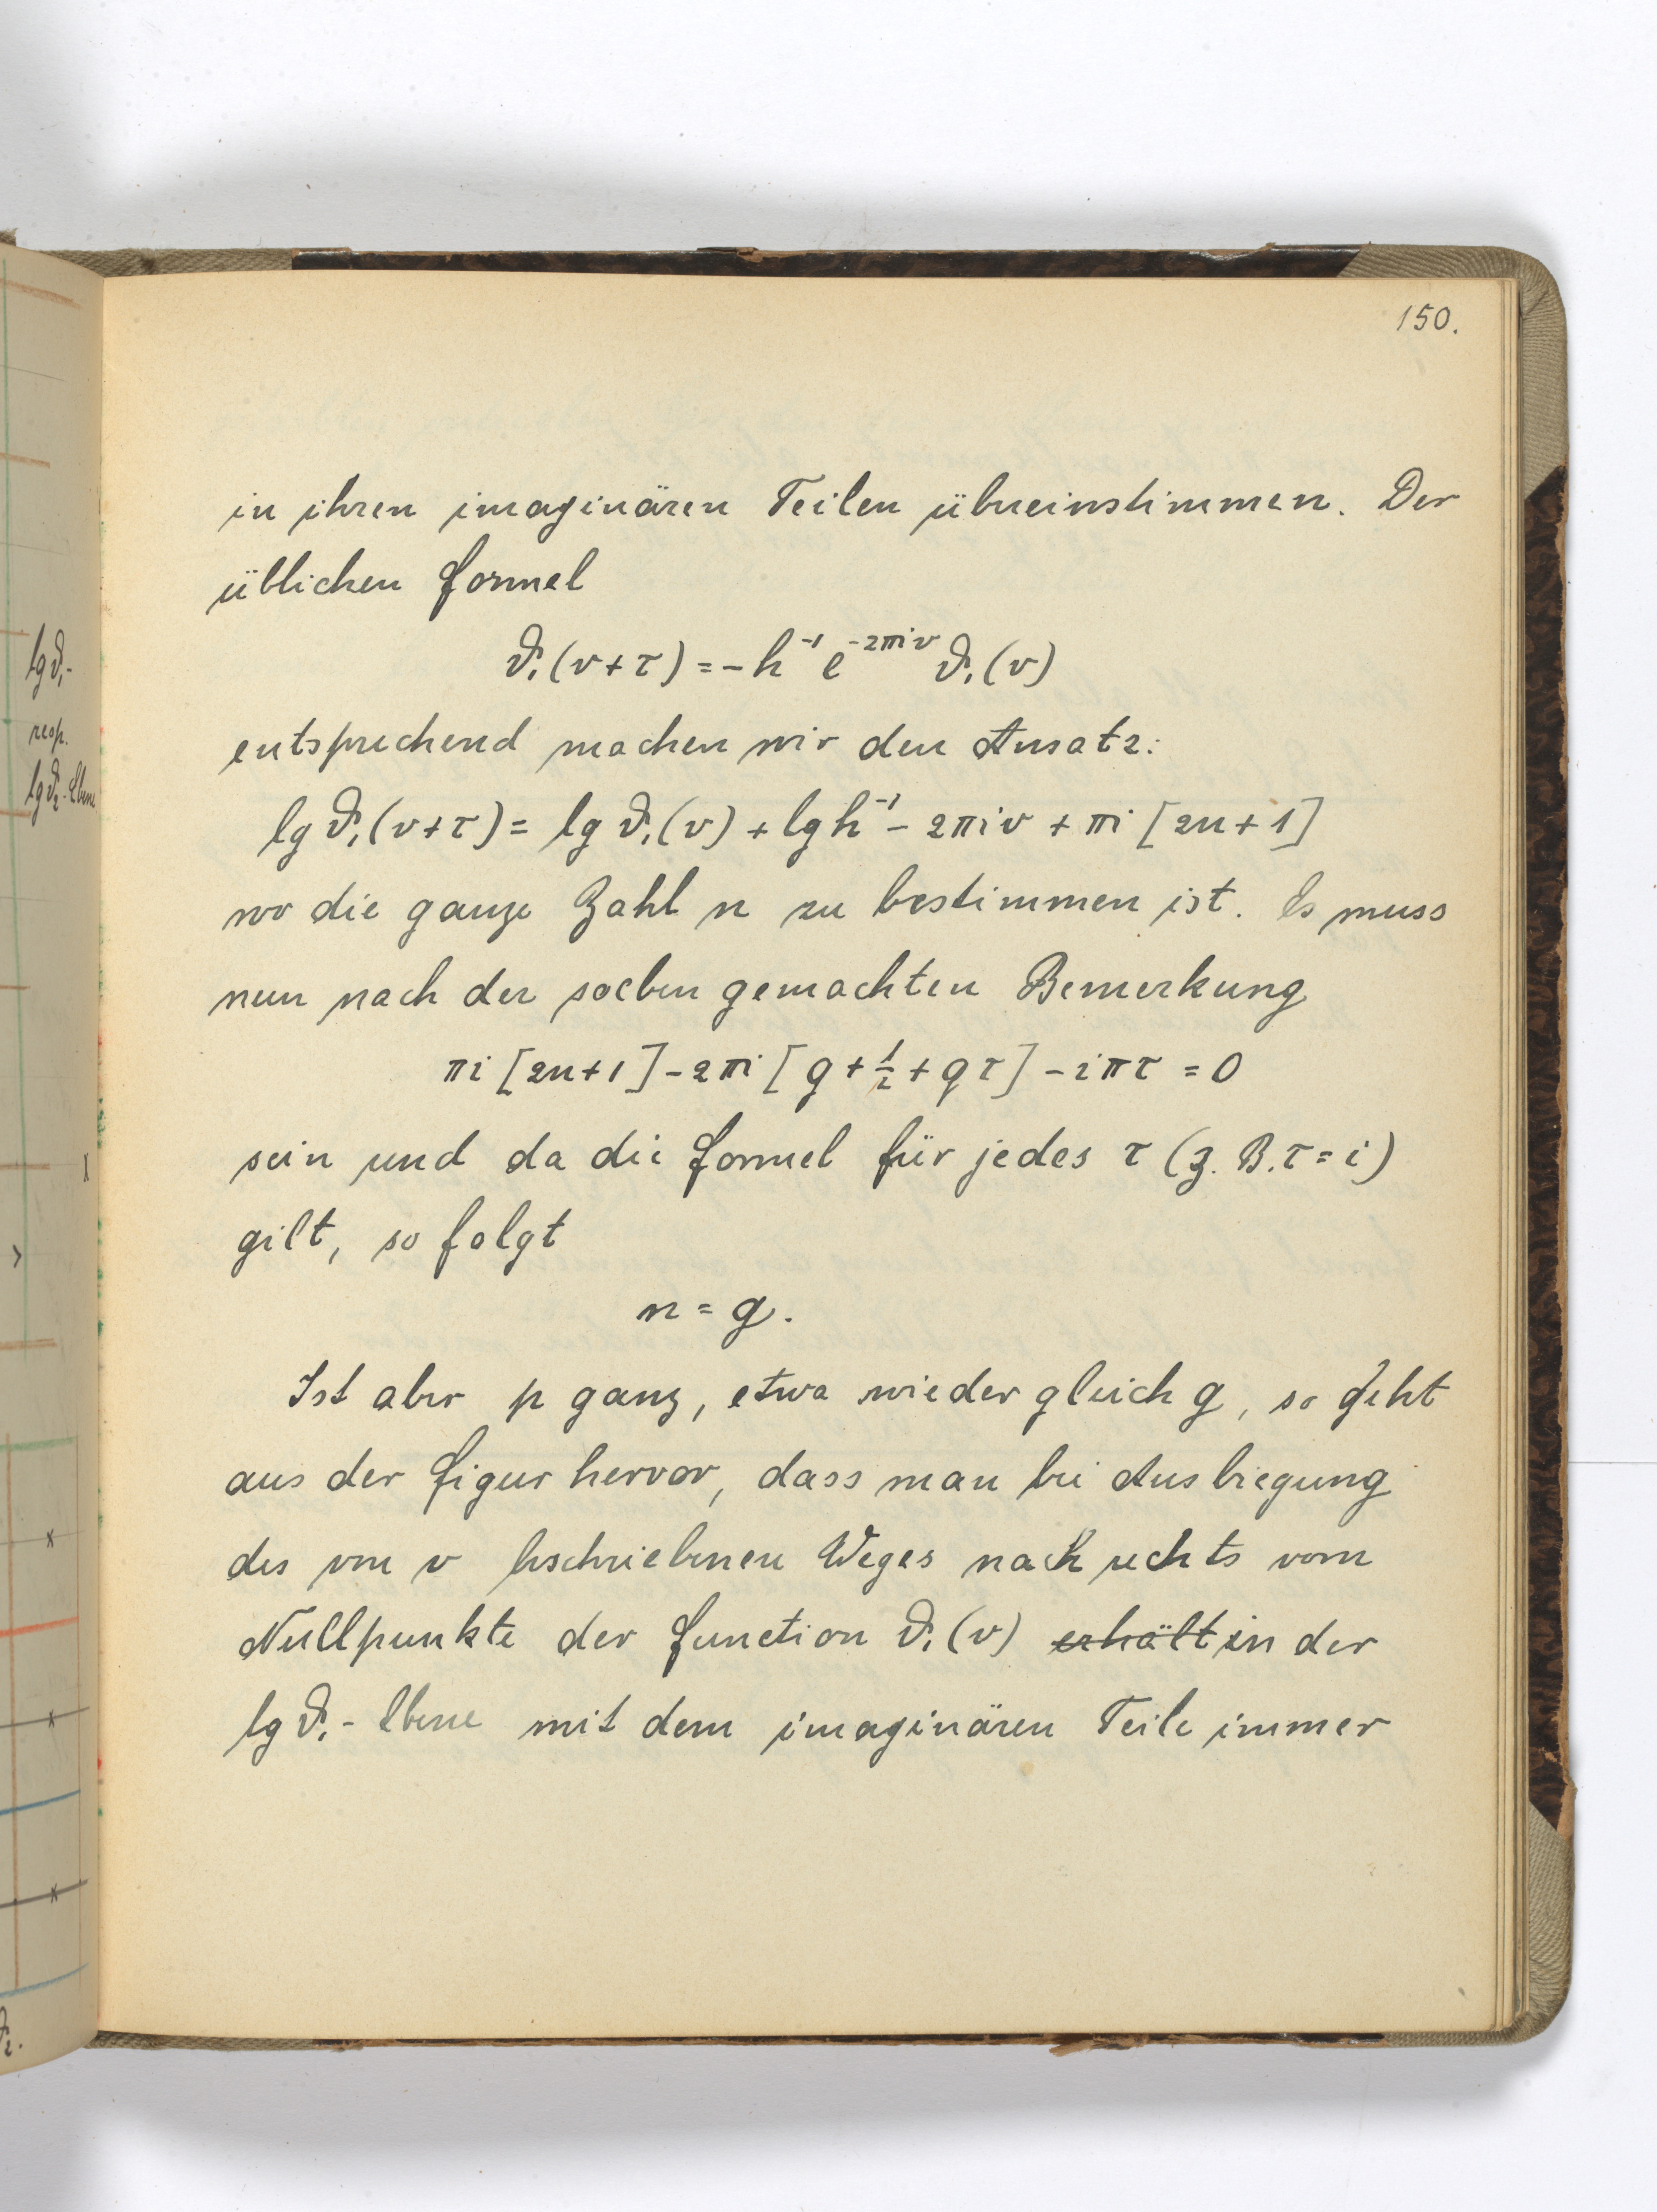 150.
in ihren imaginären Teilen übereinstimmen. Der
üblichen Formel
ϑ₁(v+τ) = -h⁻¹ e⁻²πⁱᵛ ϑ₁(v)
entsprechend machen wir den Ansatz:
lg ϑ₁(v+τ) = lg ϑ₁(v) + lg h⁻¹ - 2πiv + πi [2n+1]
wo die ganze Zahl n zu bestimmen ist. Es muss
nun nach der soeben gemachten Bemerkung
πi [2n+1] - 2πi [g + ½ + qτ] - iπτ = 0
sein und da die Formel für jedes τ (z. B. τ = i)
gilt, so folgt
n = g.
Ist aber p ganz, etwa wieder gleich g, so geht
aus der Figur hervor, dass man bei Ausbiegung
des von v beschriebenen Weges nach rechts vom
Nullpunkte der Function ϑ₁(v) erhält in der
lg ϑ₁ - Ebene mit dem imaginären Teile immer
lg ϑ₁-
resp.
lg ϑ₂-Ebene